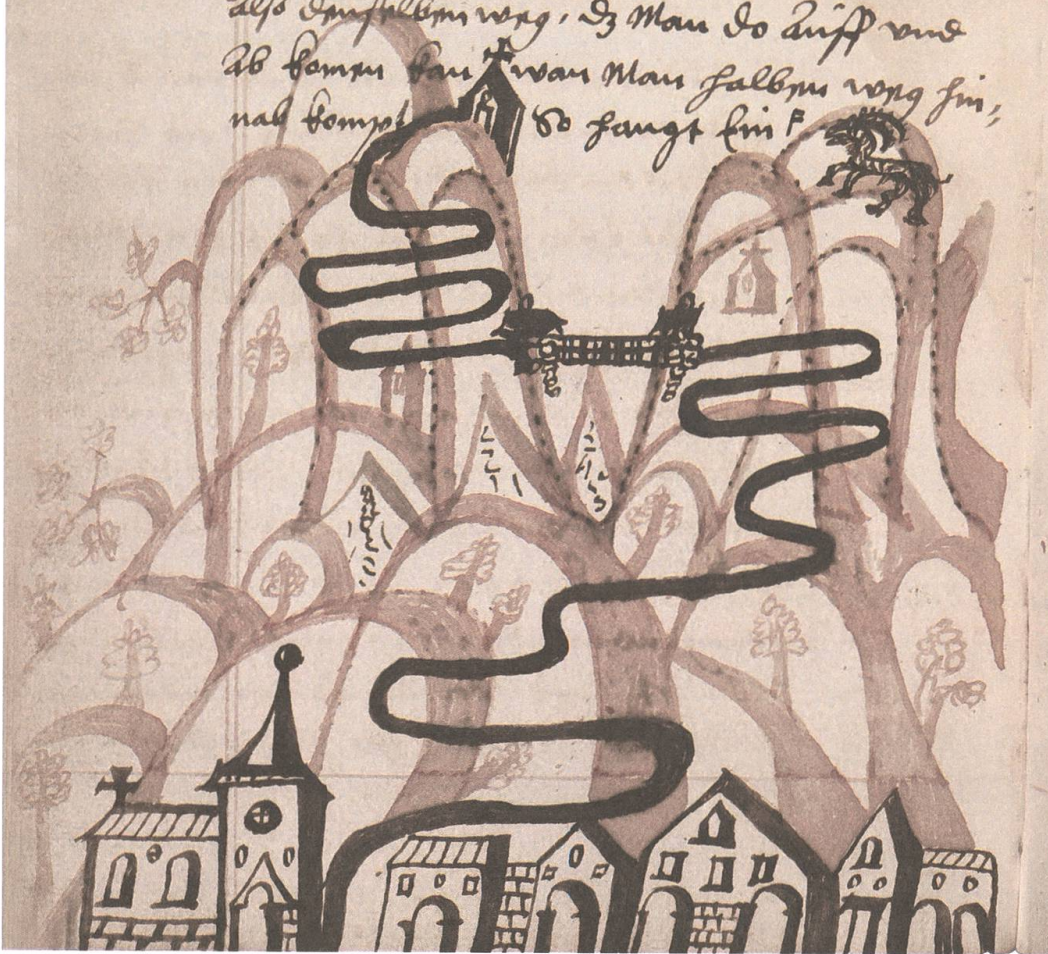 also denselben weg, dz Man do auff und
ab komen kan wan Man halben weg hin,
nab kompt So hangt Ein